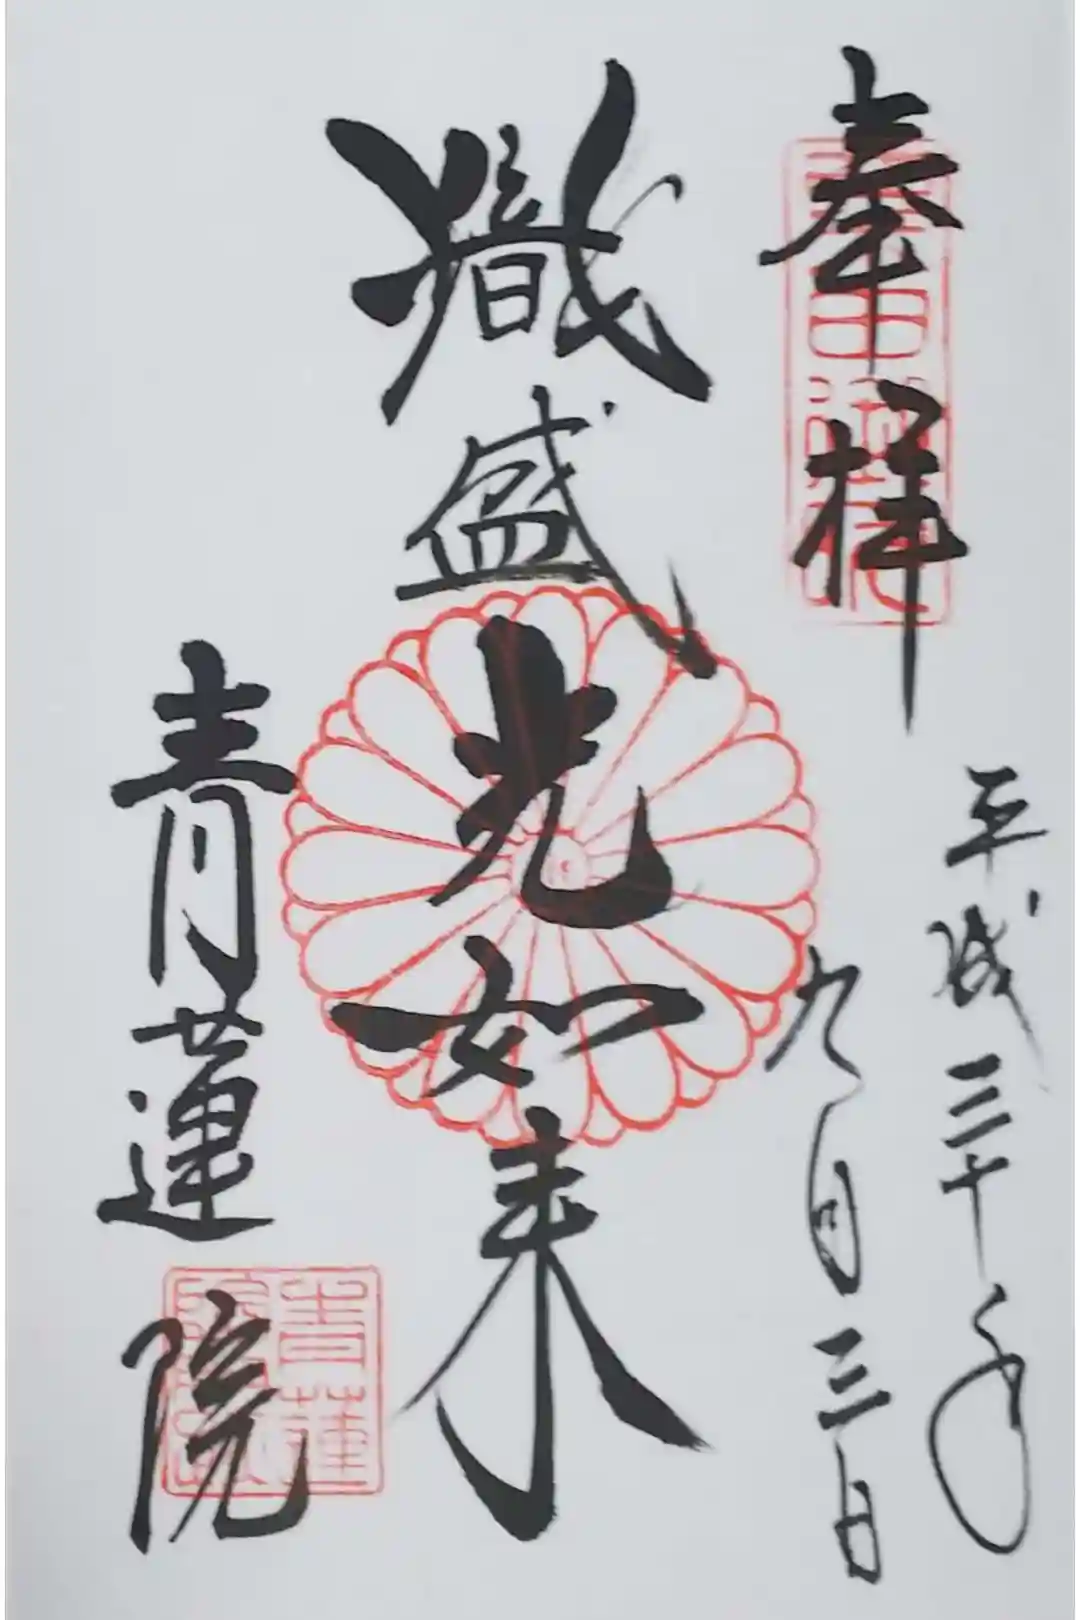 奉拝
平成三十年
九月三日
熾盛光如来
青蓮院
青蓮